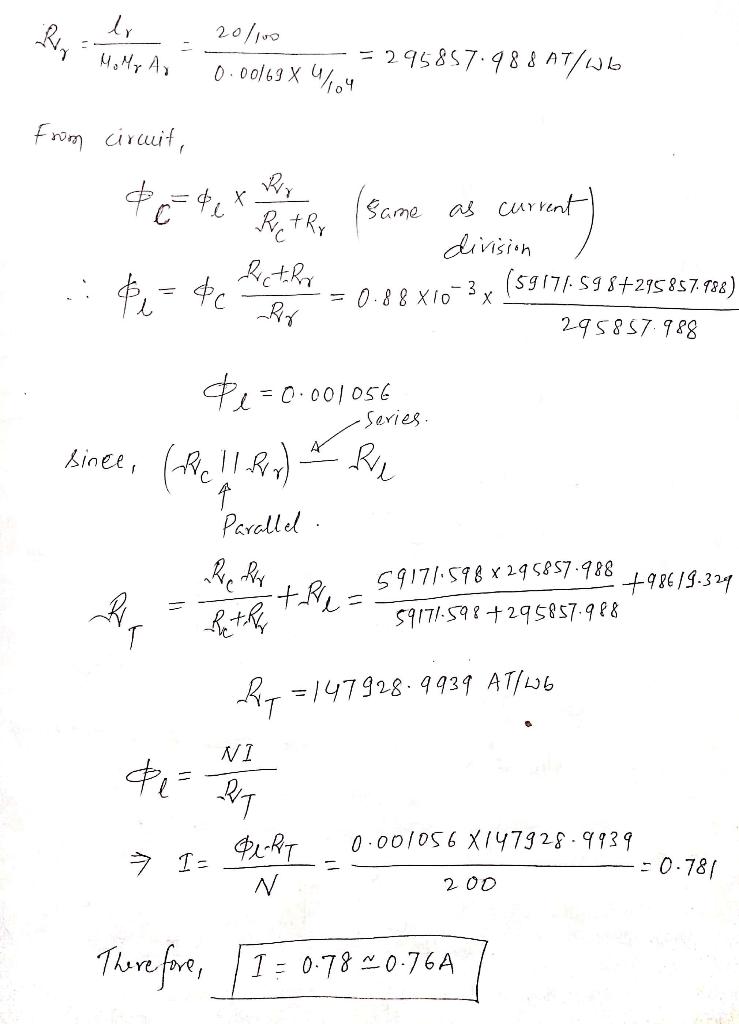 R_r = l_r / (M_o M_r A_r) = (20/100) / (0.00169 X 4/10^4) = 295857.988 AT/Wb
From circuit,
ϕ_C = ϕ_l x R_r / (R_c + R_r) (Same as current division)
∴ ϕ_l = ϕ_C (R_c + R_r) / R_r = 0.88 X10^-3 x (59171.598+295857.988) / 295857.988
ϕ_l = 0.001056
Since, (R_c || R_r) — R_l
Series.
Parallel.
R_T = R_c R_r / (R_c + R_r) + R_l = (59171.598 x 295857.988) / (59171.598 + 295857.988) + 98619.329
R_T = 147928.9939 AT/Wb
ϕ_l = NI / R_T
⇒ I = ϕ_l.R_T / N = (0.001056 X147928.9939) / 200 = 0.781
Therefore, I = 0.78 ≃ 0.76A